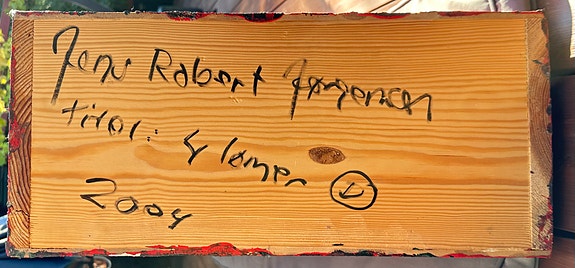 Jens Robert Jørgensen
titel: 4
2004